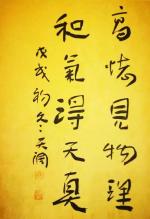 高懷見物理
和氣得天真
戊戌初冬天潤